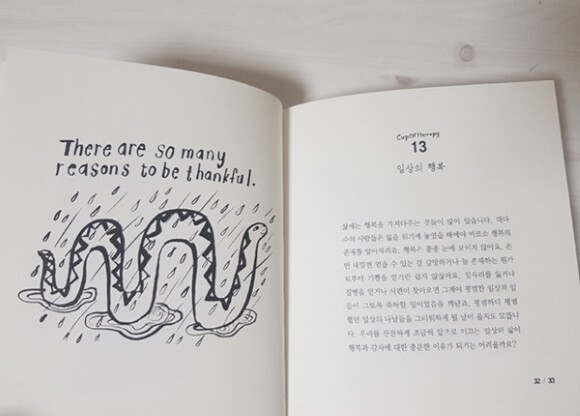 There are so many
reasons to be thankful.
CupofTherapy
13
일상의 행복
삶에는 행복을 가져다주는 것들이 많이 있습니다. 대다
수의 사람들은 잃을 위기에 놓였을 때에야 비로소 행복의
존재를 알아차리죠. 행복은 종종 눈에 보이지 않아요. 손
만 내밀면 얻을 수 있는 걸 갈망하거나 늘 존재하는 뭔가
로부터 기쁨을 얻기란 쉽지 않잖아요. 일자리를 잃거나
질병을 얻거나 시련이 찾아오면 그제야 평범한 일상의 일
들이 그토록 축하할 일이었음을 깨닫죠. 평범하디 평범
했던 일상의 나날들을 그리워하게 될 날이 올지도 모릅니
다. 우리를 찬찬하게 조금씩 앞으로 이끄는 일상의 삶이
행복과 감사에 대한 충분한 이유가 되기는 어려울까요?
32 / 33